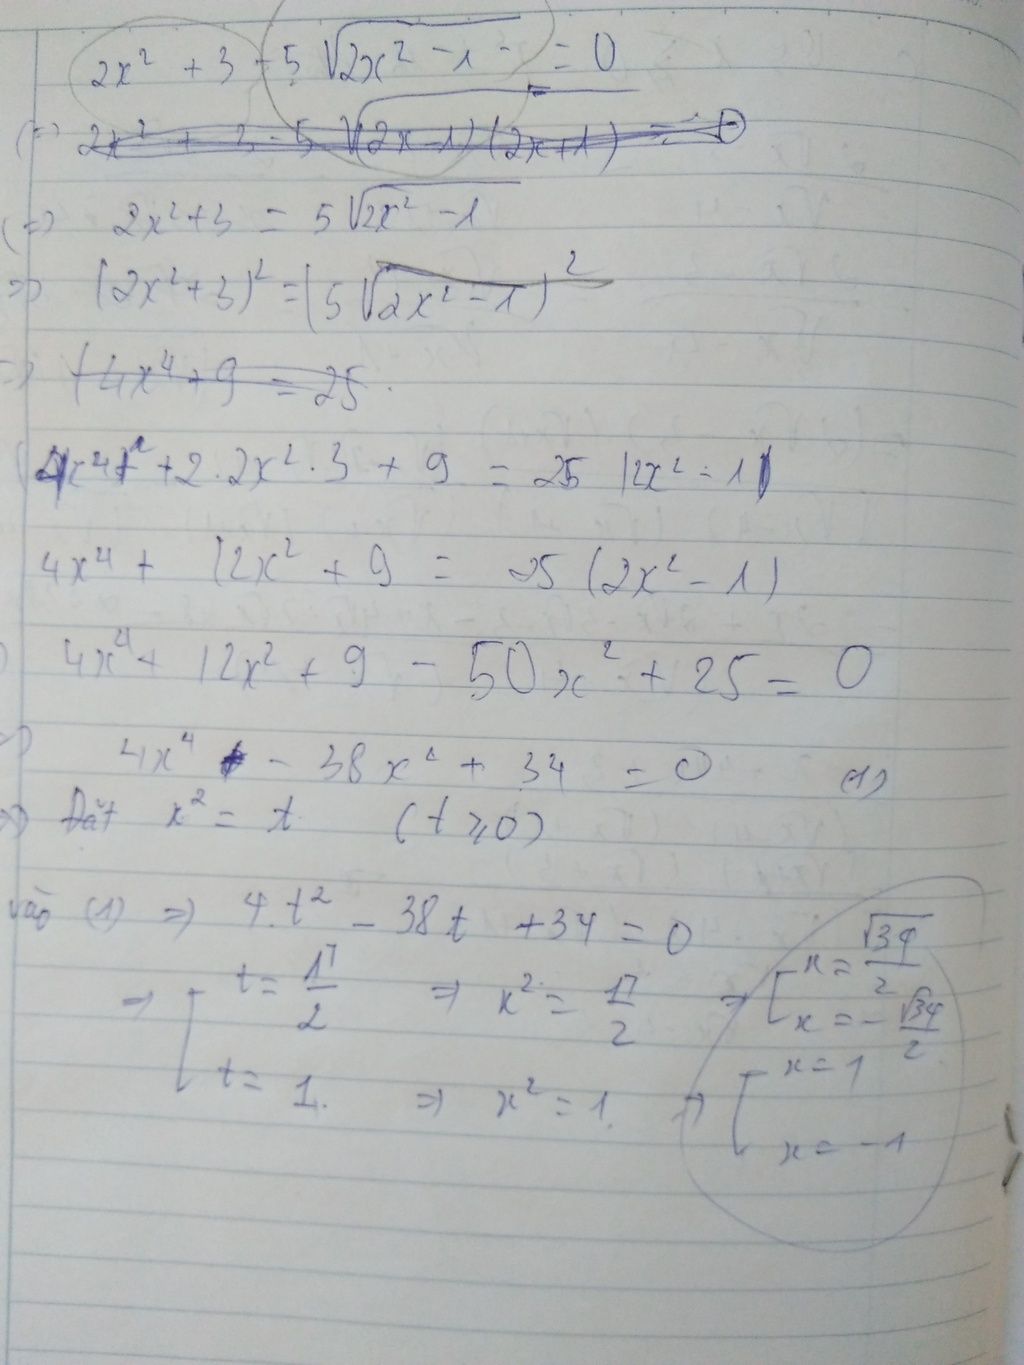 2x² + 3 - 5 √(2x² - 1) = 0
(=) 2x² + 3 - 5 √((2x-1)(2x+1)) = 0
(=) 2x² + 3 = 5 √(2x² - 1)
=> (2x² + 3)² = (5 √(2x² - 1))²
=> (4x⁴ + 9 = 25
4x⁴ + 2.2x².3 + 9 = 25 (2x² - 1)
4x⁴ + 12x² + 9 = 25 (2x² - 1)
4x⁴ + 12x² + 9 - 50x² + 25 = 0
4x⁴ - 38x² + 34 = 0 (1)
=> Đặt x² = t (t ≥ 0)
vào (1) => 4.t² - 38t + 34 = 0
=> [ t = 17/2 => x² = 17/2 => [ x = √34/2
x = -√34/2
t = 1. => x² = 1. => [ x = 1
x = -1